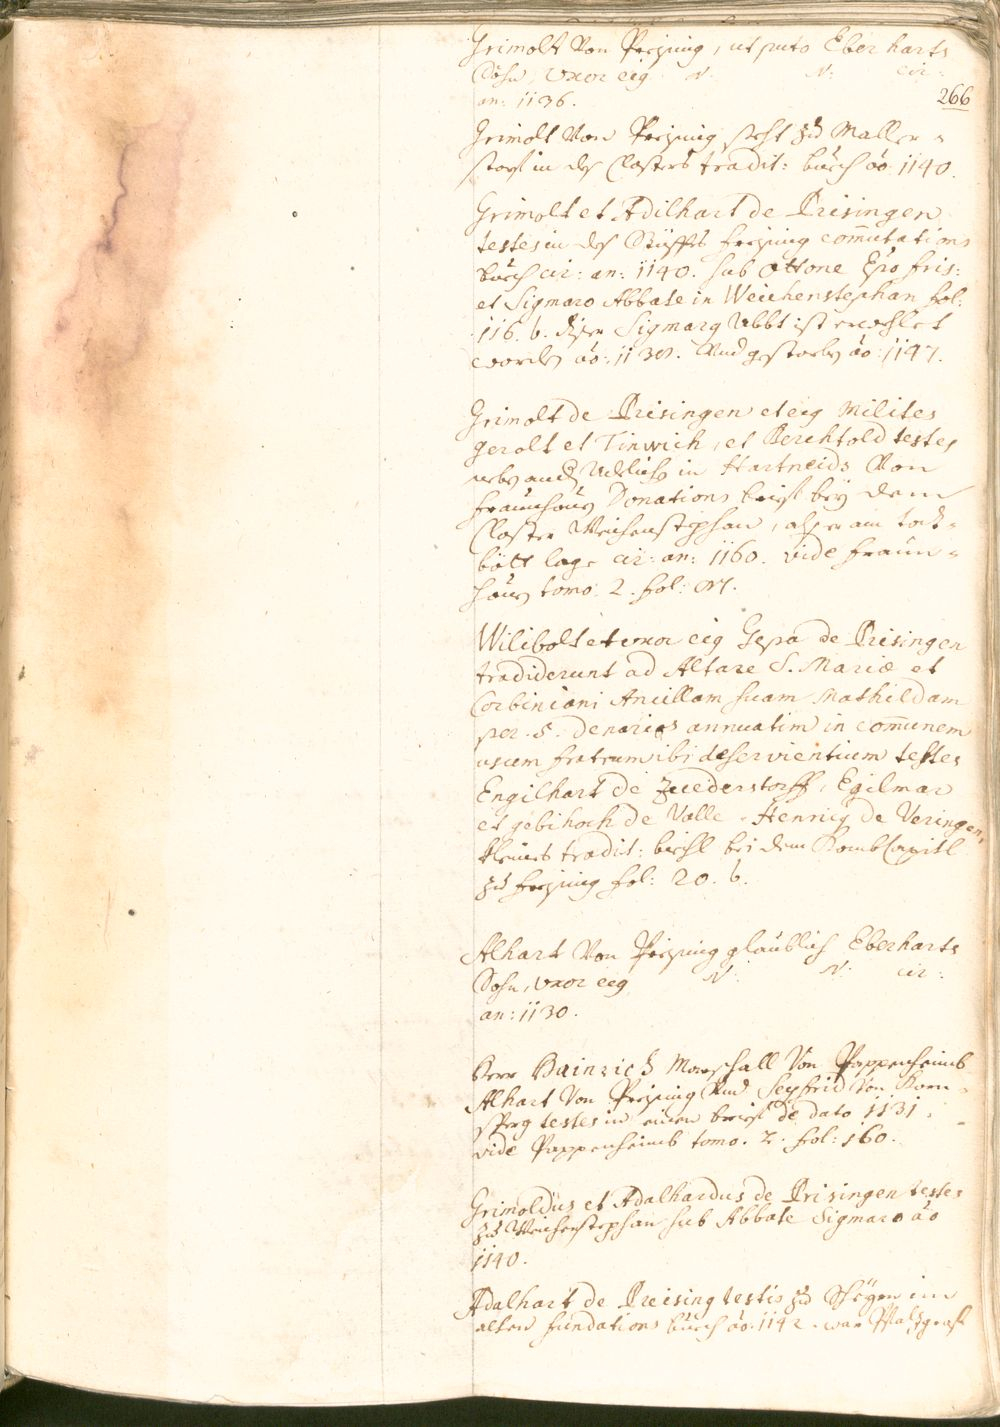 Grimolt Von Preysing, ut puto Eberharts
Sohn, uxor eig N: N: cir:
an: 1136.
266
Grimolt Von Preysing steht zu Maller=
storf in des Closters tradit: buech ao 1140.
Grimolt et Adilhart de Prisingen
testes in des Stüffts freysing commutations
buech cir: an: 1140. sub Ottone Epo fris:
et Sigmaro Abbate in Weichenstephan fol:
116. b. diser Sigmarg Abbt ist erwehlet
worden ao: 1138. Und gestorben ao: 1147.
Grimolt de Prisingen et eig Milites
gerolt et Tinwich, et Berchtold testes
neben andern Adeliche in Hartneids Von
fraunhouen Donations brief bey dem
Closter Weichenstephan, als er am todt=
bött lage cir: an: 1160. vide fraun=
houen tomo: 2. fol:
Wilibolt et uxor eig Gepa de Prisingen
tradiderunt ad Altare S. Mariæ et
Corbiniani Ancillam suam Mathildam
pro .5. denarios annuatim in com̄unem
usum fratrum ibi deservientium testes
Engilhart de Zuederstorff, Egilmar
et gebihoch de Valle, Henrig de Veringen,
kleines tradit: biechl bei dem Tomb Capitl
zu freysing fol: 20. b.
Alhart Von Preysing glaublich Eberharts
Sohn, uxor eig N: N: cir:
an: 1130.
Herr Hainrich Marschall Von Pappenheimb
Alhart Von Preysing Und Seyfrid Von Korn=
sperg testes in einem brief de dato 1131.
vide Pappenheimb tomo. 2. fol: 160.
Grimoldus et Adalhardus de Prisingen testes
zu Weichenstephan sub Abbate Sigmaro ao
1140.
Adalhart de Preising testis zu Scheyrn im
alten fundations buech ao. 1142. war Pfalzgraf